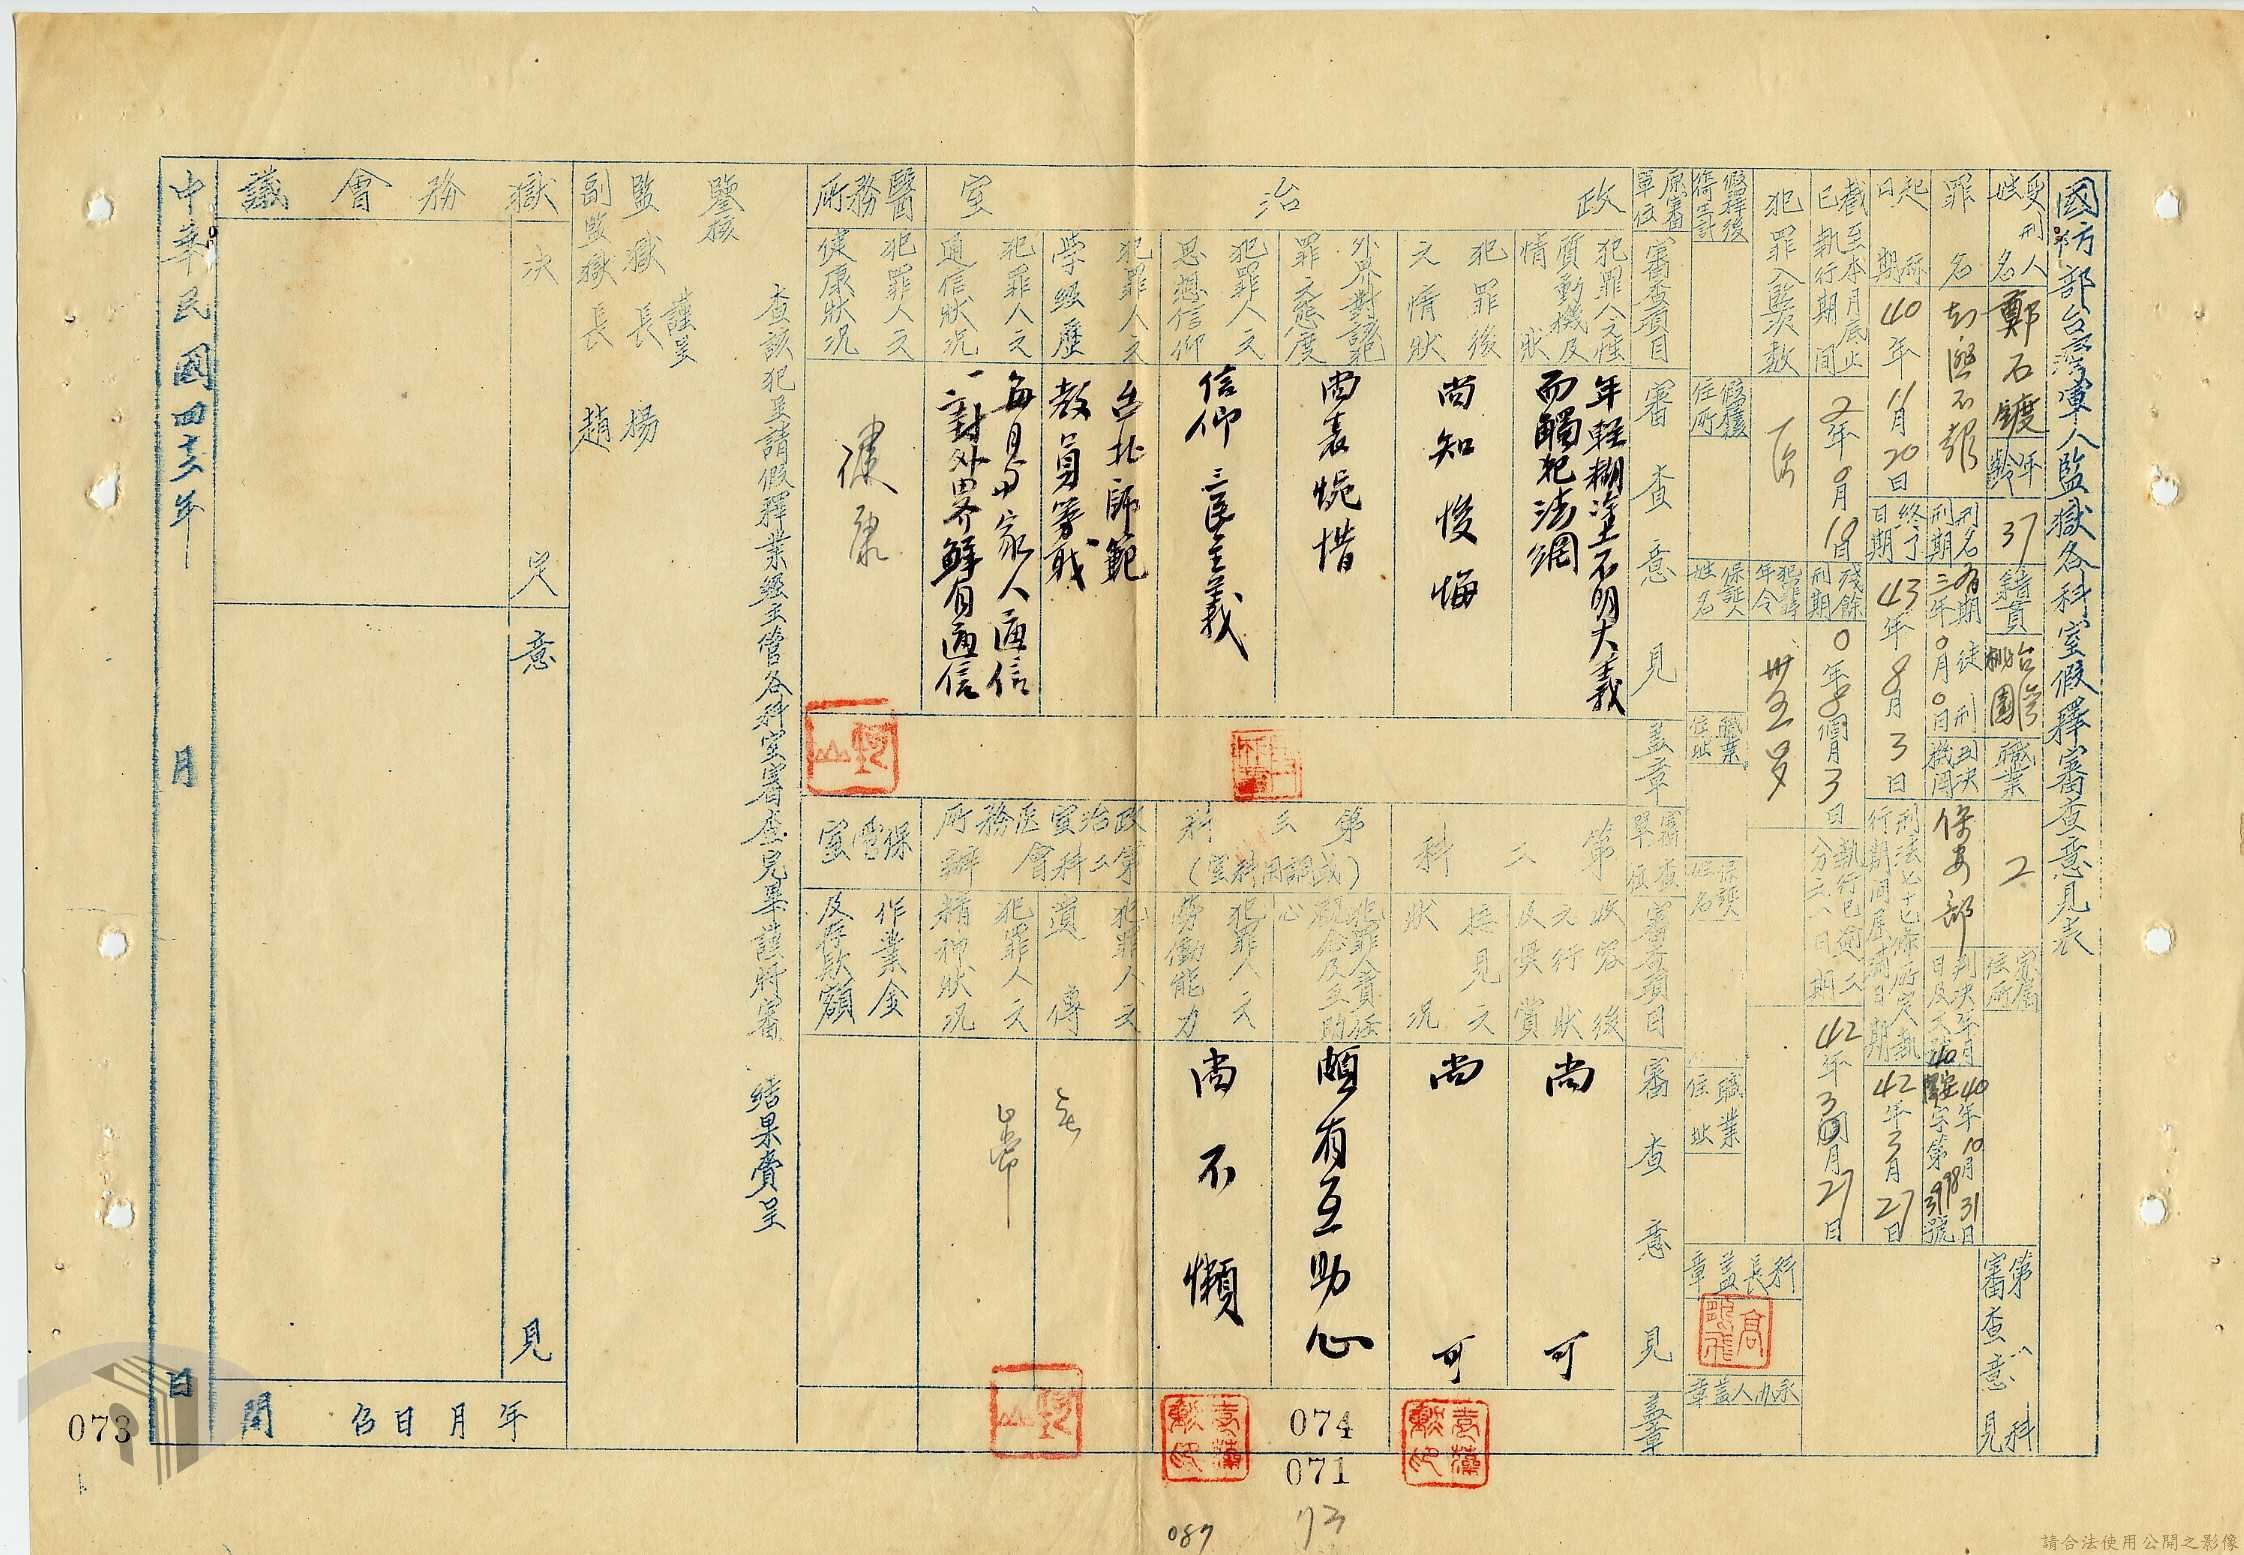 國防部台灣軍人監獄各科室假釋審查意見表
受刑人姓名
鄭石鍍
年齡
37
籍貫
台灣桃園
職業
家屬住所
第一科審查意見
罪名
知匪不報
刑名刑期
有期徒刑三年0月0日
判決機關
保安部
判決年月日及文號
40年10月31日
字第3998號
起刑日期
40年11月20日
終了日期
43年8月3日
刑法七十七條所定入執行期間屆滿日期
42年3月27日
截至本月底止已執行期間
2年
殘餘刑期
0年8個月3日
執行已逾三分之一日期
42年3月27日
犯罪入監次數
犯罪時年令
卅五歲
假釋後作何生計
假釋後住所
保証人姓名
職業住址
保証人姓名
職業住址
科長蓋章
承办人蓋章
原審單位
審查項目
審查意見
蓋章
審查單位
審查項目
審查意見
蓋章
政治室
犯罪人之性質動機及情狀
年輕糊塗不明大義而觸犯法網
犯罪後之情狀
尚知悛悔
外界對該犯罪之態度
尚表惋惜
犯罪人之思想信仰
信仰三民主義
犯罪人之學經歷
台北師範
教員等職
犯罪人之通信狀況
每月與家人通信一二封外界鮮有通信
醫務所
犯罪人之健康狀況
健康
第二科
收容後之行狀及獎賞
尚可
接見之狀況
尚可
第三科(或調用科室)
犯罪人責任觀念及互助心
頗有互助心
犯罪人之勞働能力
尚不懶
政治室第二科會医務所辦
犯罪人之遺傳
無
犯罪人之精神狀況
正常
保管室
作業金及存款額
查該犯呈請假釋業經主管各科室審查完畢謹將審 結果賷呈
鑒核
謹呈
監獄長楊
副監獄長趙
獄務會議
決定意見
年月日召開
中華民國四十二年月日
073
074
071
73
087
請合法使用公開之影像